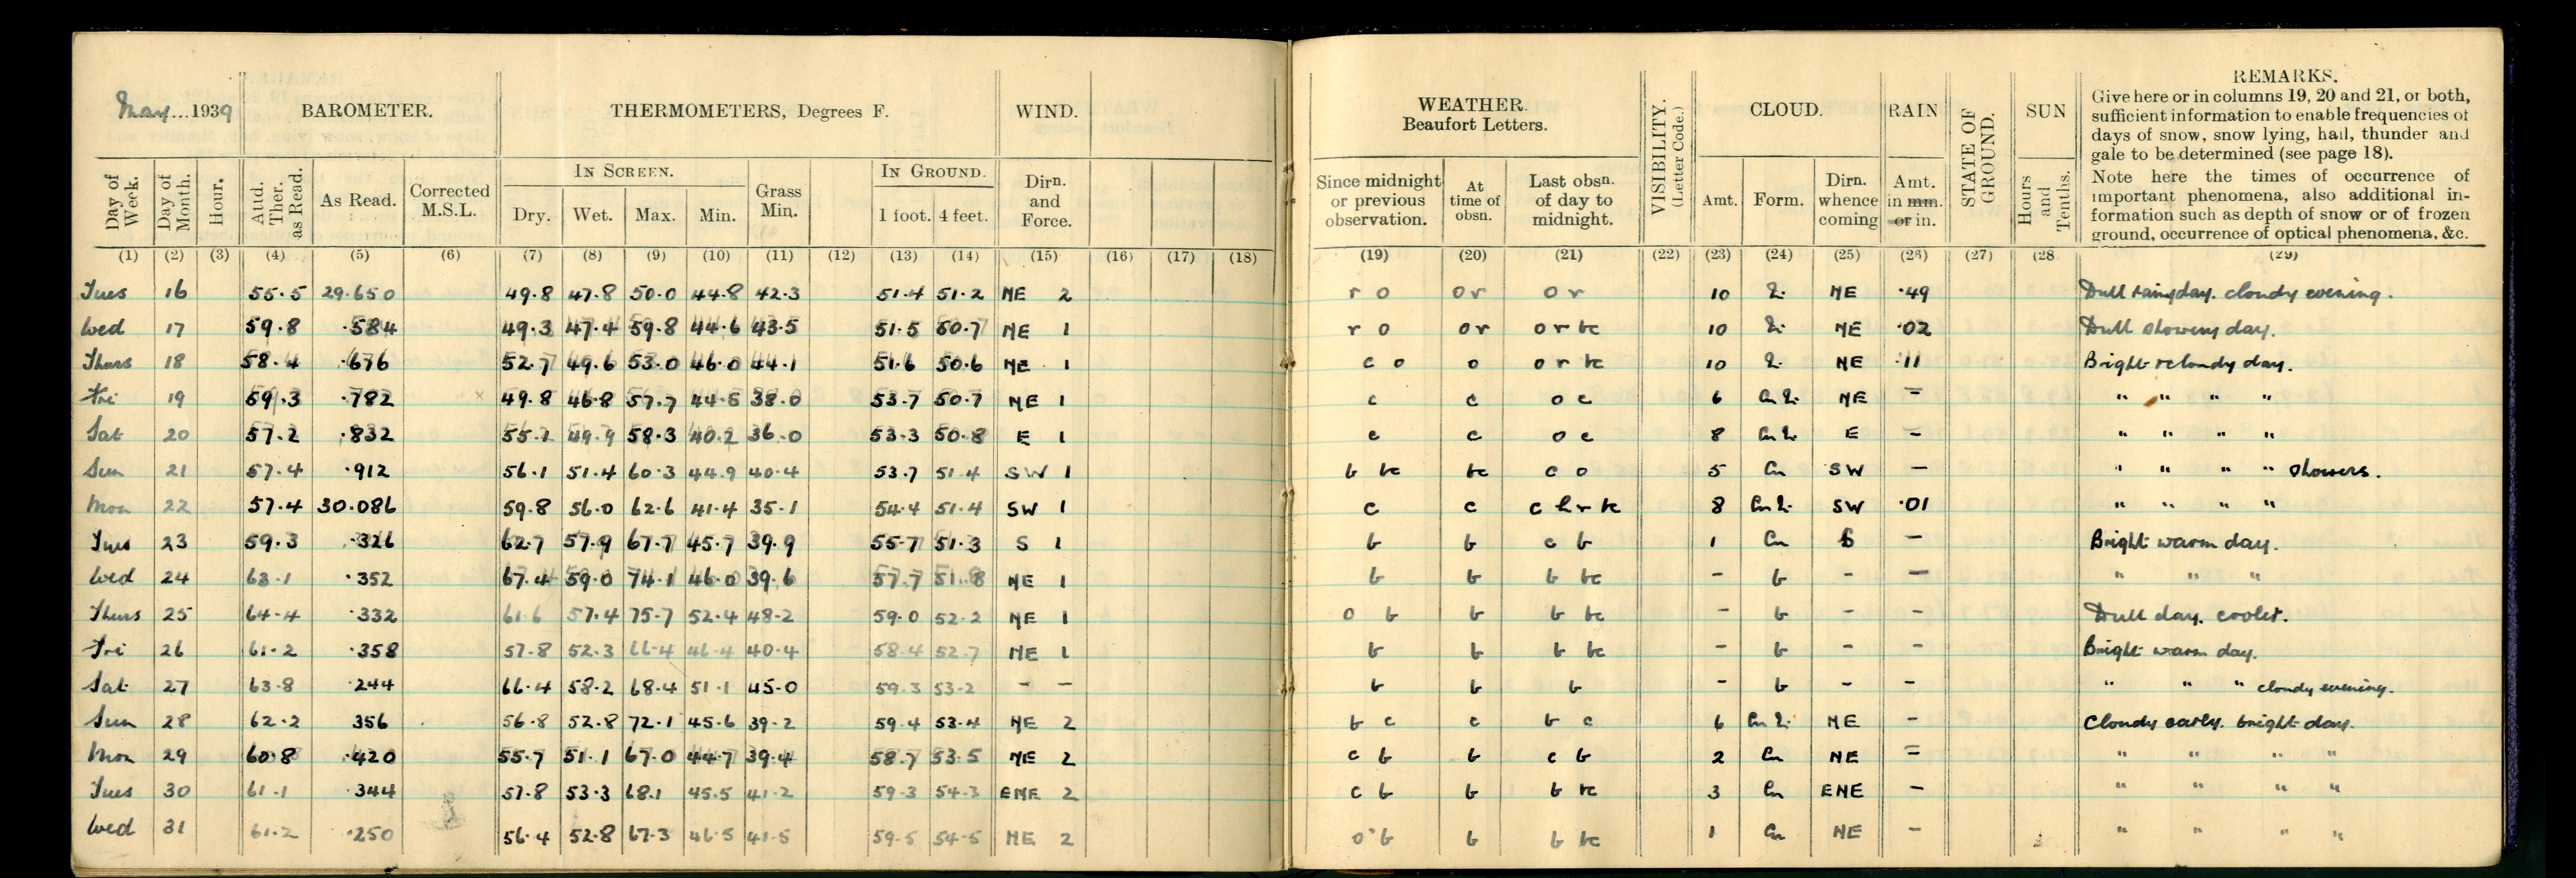 May...1939 BAROMETER. THERMOMETERS, Degrees F. WIND. WEATHER. Beaufort Letters. VISIBILITY. (Letter Code.) CLOUD. RAIN STATE OF GROUND. SUN REMARKS.
Give here or in columns 19, 20 and 21, or both,
sufficient information to enable frequencies of
days of snow, snow lying, hail, thunder and
gale to be determined (see page 18).
Note here the times of occurrence of
important phenomena, also additional in-
formation such as depth of snow or of frozen
ground, occurrence of optical phenomena, &c.
IN SCREEN. IN GROUND.
Day of Week. Day of Month. Hour. Attd. Ther. as Read. As Read. Corrected M.S.L. Dry. Wet. Max. Min. Grass Min. 1 foot. 4 feet. Dirn. and Force. Since midnight or previous observation. At time of obsn. Last obsn. of day to midnight. Amt. Form. Dirn. whence coming Amt. in mm. or in. Hours and Tenths.
(1) (2) (3) (4) (5) (6) (7) (8) (9) (10) (11) (12) (13) (14) (15) (16) (17) (18) (19) (20) (21) (22) (23) (24) (25) (26) (27) (28 (29)
Tues 16 55.5 29.650 49.8 47.8 50.0 44.8 42.3 51.4 51.2 NE 2 r o o r o r 10 NE .49 Dull rainy day. cloudy evening.
Wed 17 59.8 .584 49.3 47.4 59.8 44.6 43.5 51.5 50.7 NE 1 r o o r o r bc 10 NE .02 Dull showery day.
Thurs 18 58.4 .676 52.7 49.6 53.0 46.0 44.1 51.6 50.6 NE 1 c o o o r bc 10 NE .11 Bright & cloudy day.
Fri 19 59.3 .782 49.8 46.8 57.7 44.5 38.0 53.7 50.7 NE 1 c c o c 6 Cu NE - " " " "
Sat 20 57.2 .832 55.1 49.9 58.3 40.2 36.0 53.3 50.8 E 1 c c o c 8 Cu E - " " " "
Sun 21 57.4 .912 56.1 51.4 60.3 44.9 40.4 53.7 51.4 SW 1 b bc bc c o 5 Cu SW - " " " " Showers.
Mon 22 57.4 30.086 59.8 56.0 62.6 41.4 35.1 54.4 51.4 SW 1 c c c h r bc 8 Cu SW .01 " " " "
Tues 23 59.3 .326 62.7 57.9 67.7 45.7 39.9 55.7 51.3 S 1 b b c b 1 Cu S - Bright warm day.
Wed 24 63.1 .352 67.4 59.0 74.1 46.0 39.6 57.7 51.8 NE 1 b b b bc - b - - " " "
Thurs 25 64.4 .332 61.6 57.4 75.7 52.4 48.2 59.0 52.2 NE 1 o b b b bc - b - - Dull day. cooler.
Fri 26 61.2 .358 57.8 52.3 66.4 46.4 40.4 58.4 52.7 NE 1 b b b bc - b - - Bright warm day.
Sat 27 63.8 .244 66.4 58.2 68.4 51.1 45.0 59.3 53.2 - - b b b - b - - " " " cloudy evening.
Sun 28 62.2 356 56.8 52.8 72.1 45.6 39.2 59.4 53.4 NE 2 b c c b c 6 Cu NE - Cloudy early. bright day.
Mon 29 60.8 .420 55.7 51.1 67.0 44.7 39.4 58.7 53.5 NE 2 c b b c b 2 Cu NE - " " " "
Tues 30 61.1 .344 57.8 53.3 68.1 45.5 41.2 59.3 54.3 ENE 2 c b b b bc 3 Cu ENE - " " " "
Wed 31 61.2 .250 56.4 52.8 67.3 46.5 41.5 59.5 54.5 NE 2 o b b b bc 1 Cu NE - " " " "